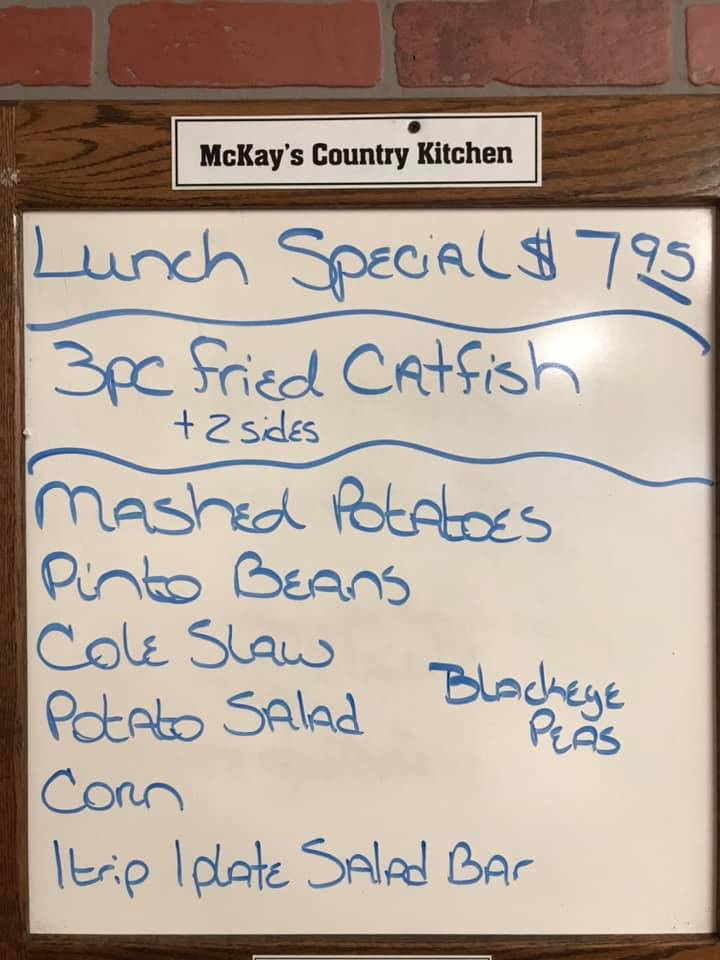 McKay's Country Kitchen
Lunch Special $ 7 95
3pc Fried Catfish
+ 2 sides
Mashed Potatoes
Pinto Beans
Cole Slaw
Potato Salad
Blackeye
Peas
Corn
1 trip 1 plate Salad Bar